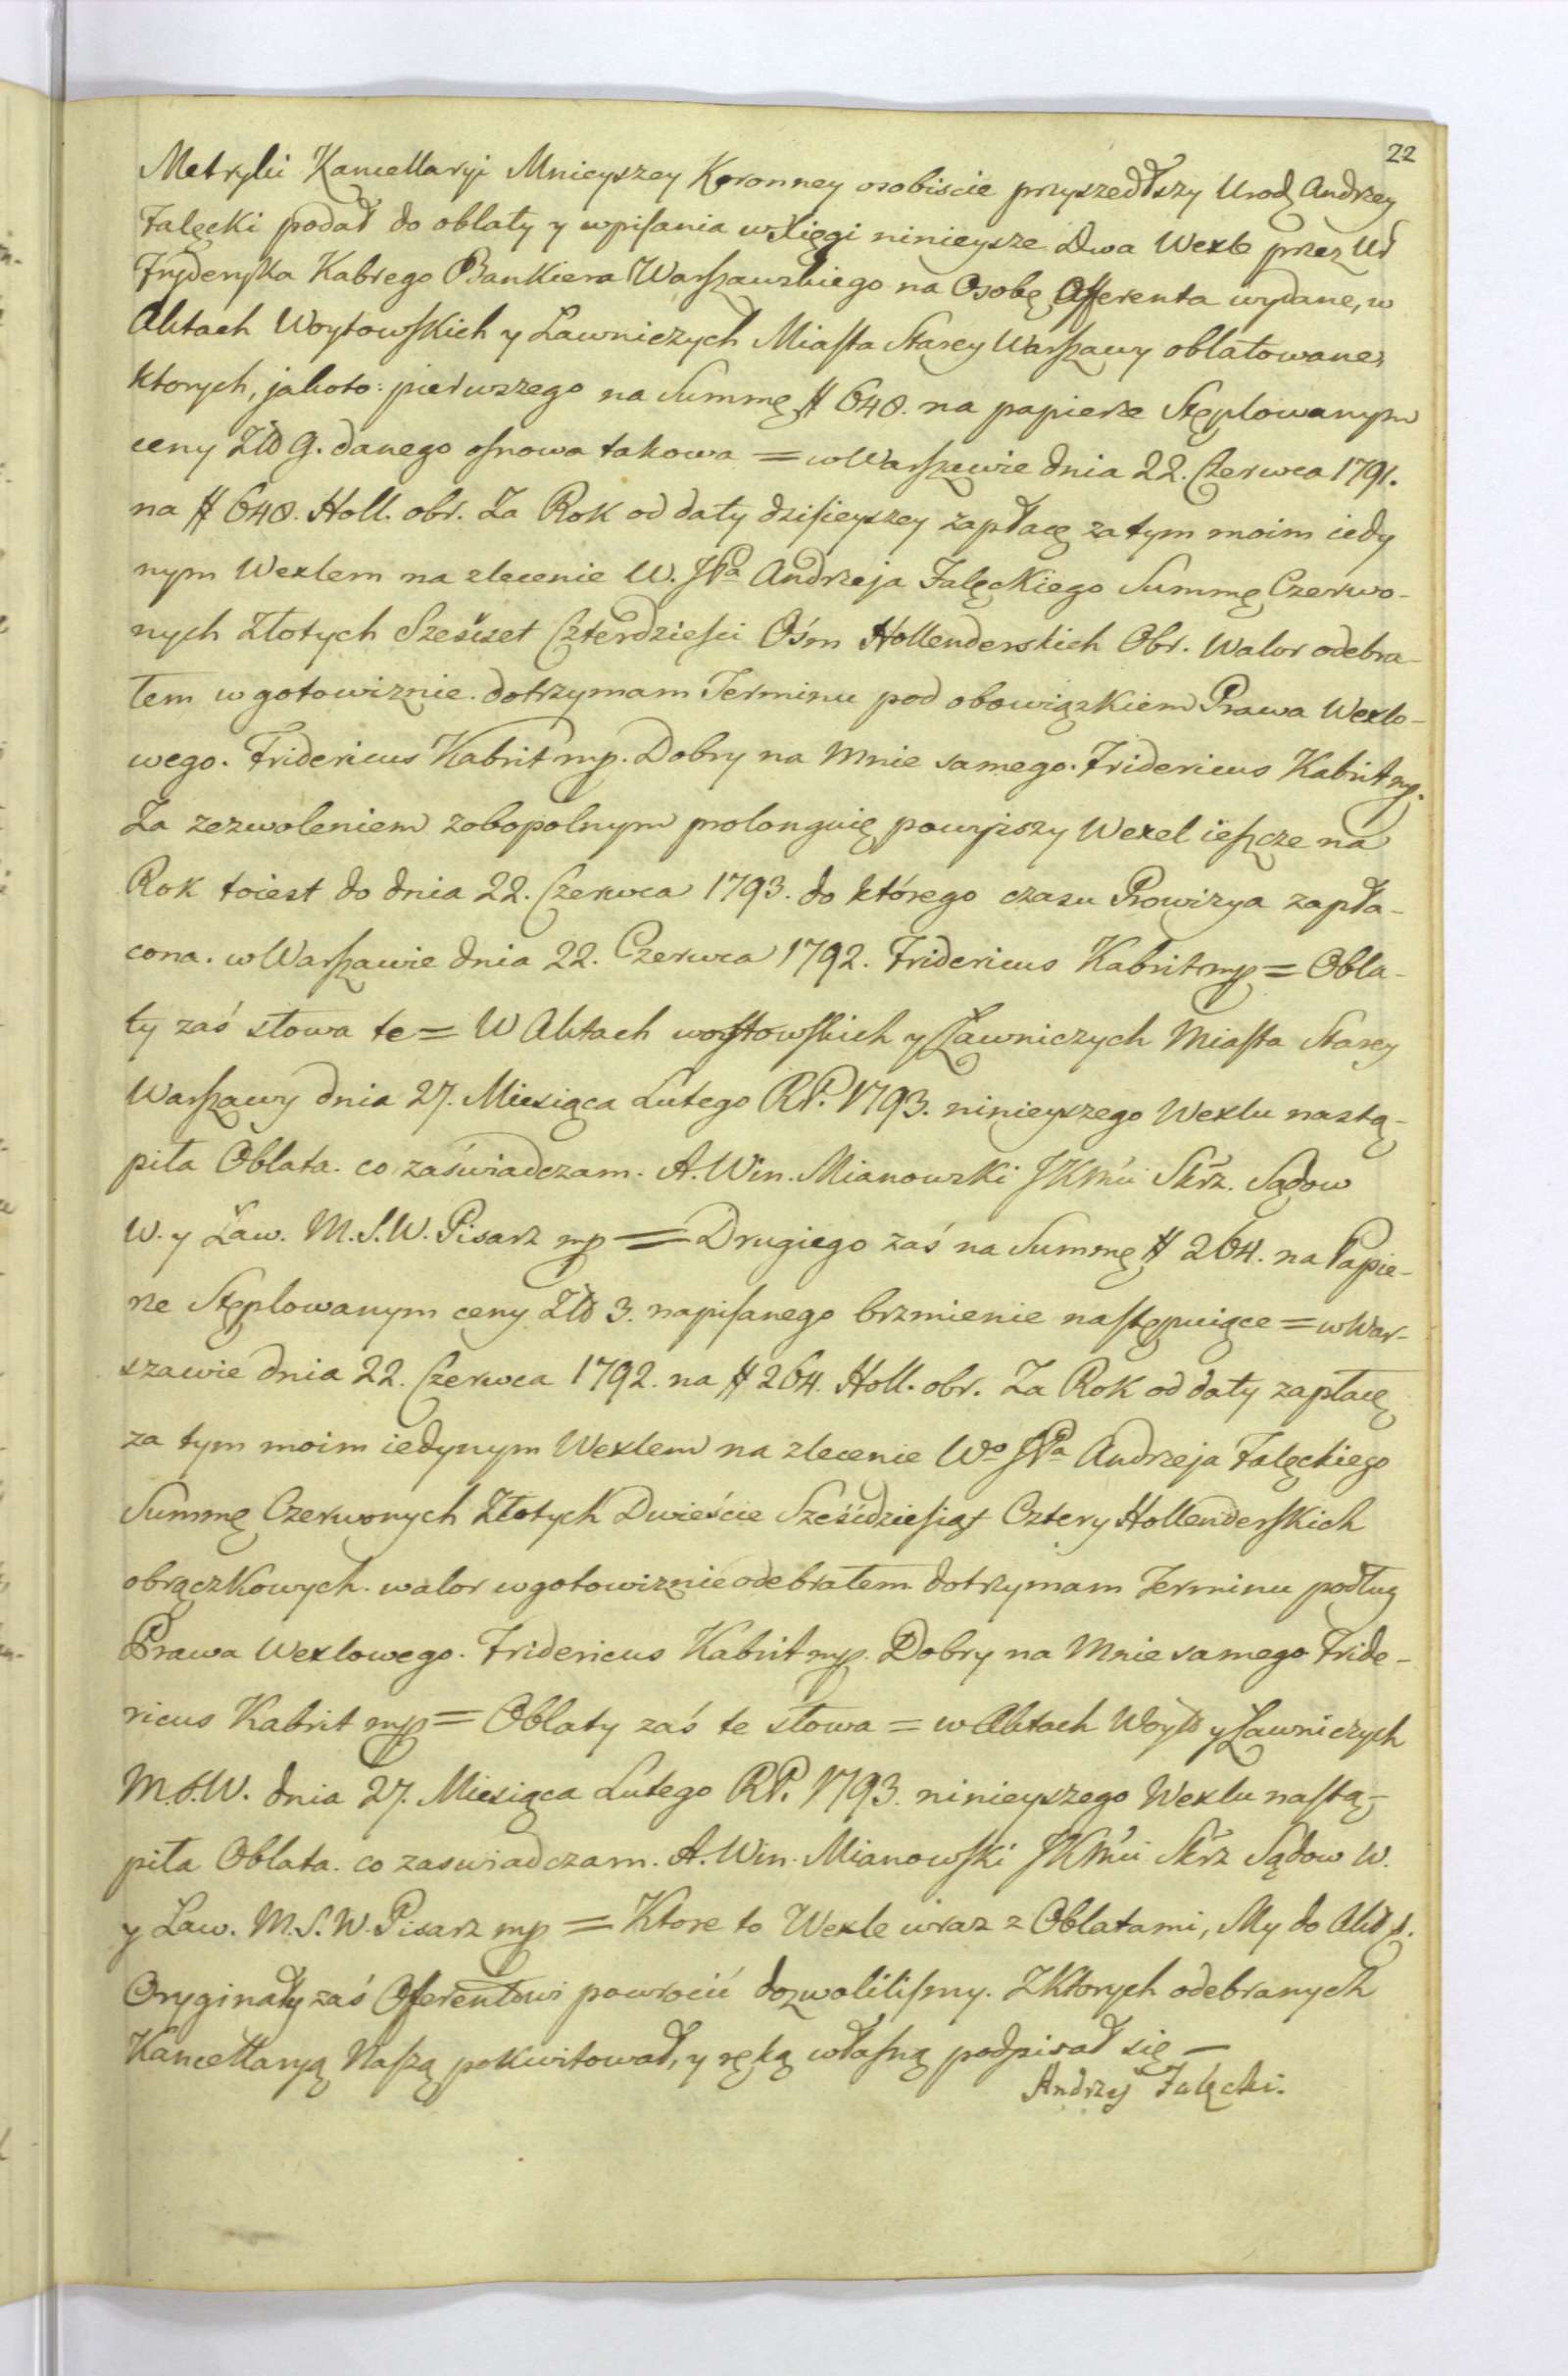 22
Metryki Kancellaryi Mnieyszey Koronney osobiscie przyszedłszy Urod Andrzey
Falęcki podał do oblaty y wpisania w Xięgi ninieysze Dwa Wexle przez Ur
Fryderyka Kabrego Bankiera Warszawskiego na Osobę Offerenta wydane, w
Aktach Woytowskich y Ławniczych Miasta Starey Warszawy oblatowane,
ktorych, jakoto: pierwszego na Summę # 648. na papierze Stęplowanym
ceny Złł 9. danego osnowa takowa = w Warszawie dnia 22. Czerwca 1791.
na # 648. Holl. obr. Za Rok od daty dzisieyszey zapłacę za tym moim iedy
nym Wexlem na zlecenie W. JPa Andrzeja Falęckiego Summę Czerwo-
nych Złotych Sześćset Czterdziesci Ośm Hollenderskich Obr. Walor odebra-
łem w gotowiznie. dotrzymam Terminu pod obowiązkiem Prawa Wexlo-
wego. Fridericus Kabrit mp. Dobry na Mnie samego. Fridericus Kabrit mp.
Za zezwoleniem zobopolnym prolonguię powyższy Wexel ieszcze na
Rok toiest do dnia 22. Czerwca 1793. do którego czasu Prowizya zapła-
cona. w Warszawie dnia 22. Czerwca 1792. Fridericus Kabrit mp = Obla-
ty zaś słowa te = W Aktach woytowskich y Ławniczych Miasta Starey
Warszawy dnia 27. Miesiąca Lutego RP. 1793. ninieyszego Wexlu nastą-
piła Oblata. co zaświadczam. A. Win. Mianowski JKMci Skrz. Sądow
W. y Ław. M.S.W. Pisarz mp = Drugiego zaś na Summę # 264. na Papie-
rze Stęplowanym ceny Złł 3. napisanego brzmienie następuiące = w War-
szawie dnia 22. Czerwca 1792. na # 264. Holl. obr. Za Rok od daty zapłacę
za tym moim iedynym Wexlem na zlecenie Wo JPa Andrzeja Falęckiego
Summę Czerwonych Złotych Dwieście Sześćdziesiąt Cztery Hollenderskich
obrączkowych. walor w gotowiznie odebrałem dotrzymam Terminu podług
Prawa Wexlowego. Fridericus Kabrit mp. Dobry na Mnie samego Fride-
ricus Kabrit mp = Oblaty zaś te słowa = w Aktach Woytt y Ławniczych
M.S.W. dnia 27. Miesiąca Lutego RP. 1793. ninieyszego Wexlu nastą-
piła Oblata. co zaswiadczam. A. Win. Mianowski JKMci Skrz Sądow W.
y Ław. M.S.W. Pisarz mp = Ktore to Wexle wraz z Oblatami, My do Akt
Oryginały zaś Oferentowi powrocić dozwolilismy. Z Ktorych odebranych
Kancellaryą Naszą pokwitował, y ręką własną podpisał się —
Andrzej Falęcki.